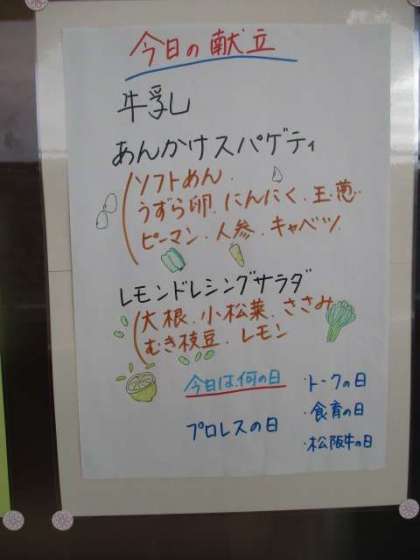 今日の献立
牛乳
あんかけスパゲティ
ソフトめん.
うずら卵.にんにく.玉葱.
ピーマン.人参.キャベツ
レモンドレシングサラダ
大根.小松菜.ささみ
むき枝豆.レモン
今日は何の日
・トークの日
プロレスの日
・食育の日
・松阪牛の日